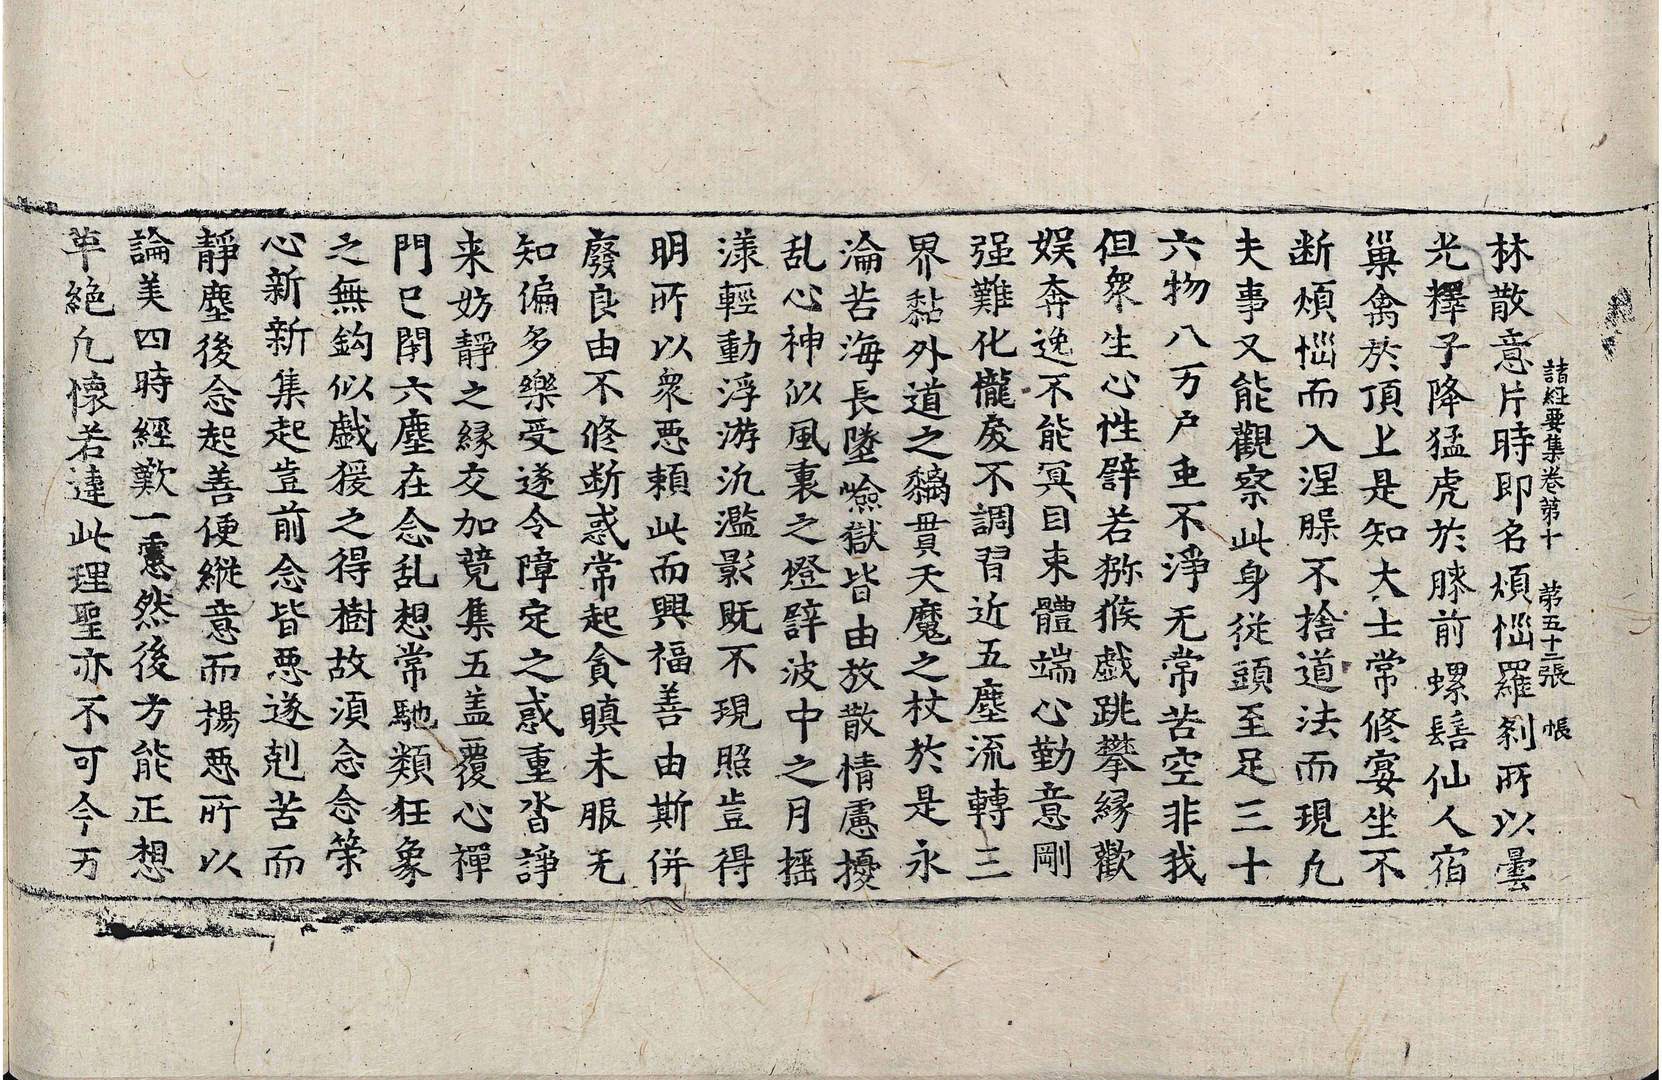 諸經要集卷第十　第五十二張　帳
林散意片時即名煩惱羅刹所以曇
光釋子降猛虎於膝前螺髻仙人宿
巢禽於頂上是知大士常修宴坐不
断煩惱而入涅槃不捨道法而現凡
夫事又能觀察此身從頭至足三十
六物八万户虫不淨无常苦空非我
但衆生心性譬若獼猴戲跳攀緣歡
娱奔逸不能冥目束體端心勤意剛
强難化𢤱悷不調習近五塵流轉三
界黏外道之黐貫天魔之杖於是永
淪苦海長墜嶮獄皆由放散情慮擾
乱心神似風裏之燈譬波中之月摇
漾輕動浮游汎濫影既不現照豈得
明所以衆惡頼此而興福善由斯併
廢良由不修断惑常起貪瞋未服无
知偏多樂受遂令障定之惑重沓諍
来妨靜之緣交加競集五盖覆心禪
門已閇六塵在念乱想常馳類狂象
之無鈎似戲猨之得樹故湏念念策
心新新集起豈前念皆惡遂剋苦而
靜塵後念起善便縱意而揚惡所以
論美四時經歎一慮然後方能正想
革絶凡懷若違此理聖亦不可今万